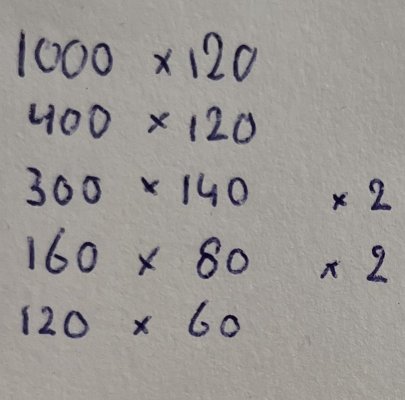 1000 × 120
400 × 120
300 × 140 × 2
160 × 80 × 2
120 × 60